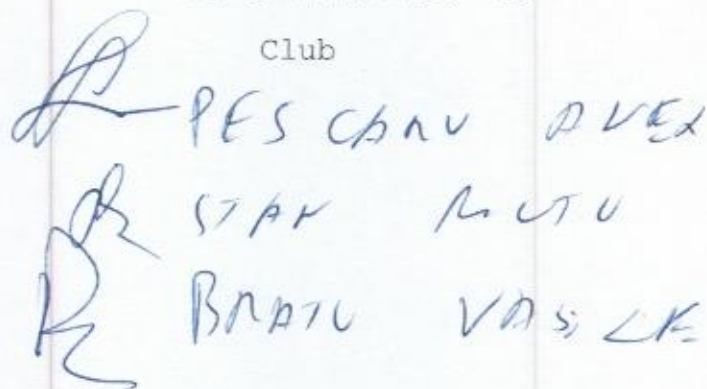 Club
PESCARU ALEX
STAN MUTU
BRATU VASILE